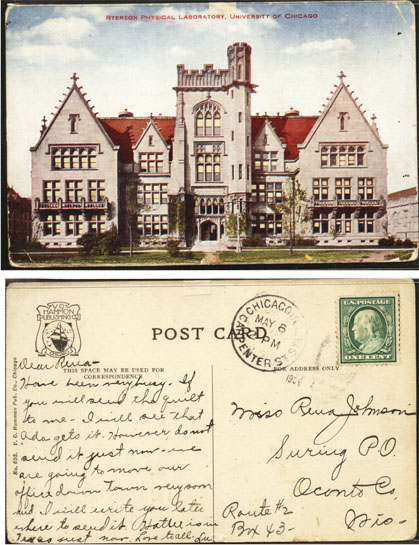 RYERSON PHYSICAL LABORATORY, UNIVERSITY OF CHICAGO
V.O.
HAMMON
PUBLISHING CO.
CHICAGO
POST CARD
THIS SPACE MAY BE USED FOR
CORRESPONDENCE
FOR ADDRESS ONLY
No. 692. V. O. Hammon Pub. Co., Chicago
CHICAGO
MAY 6
PM
CARPENTER ST. STA.
U.S. POSTAGE
ONE CENT
Dear Rena-
Have been very busy - If
you will send the quilt
to me - I will see that
Ada gets it. However do not
send it just now - we
are going to move our
office down town very soon
and I will write you later
where to send it. Hattie is in
Texas just now. Love to all.
Miss Rena Johnson
Suring P.O.
Oconto Co.
Wis-
Route #2
Box 43-